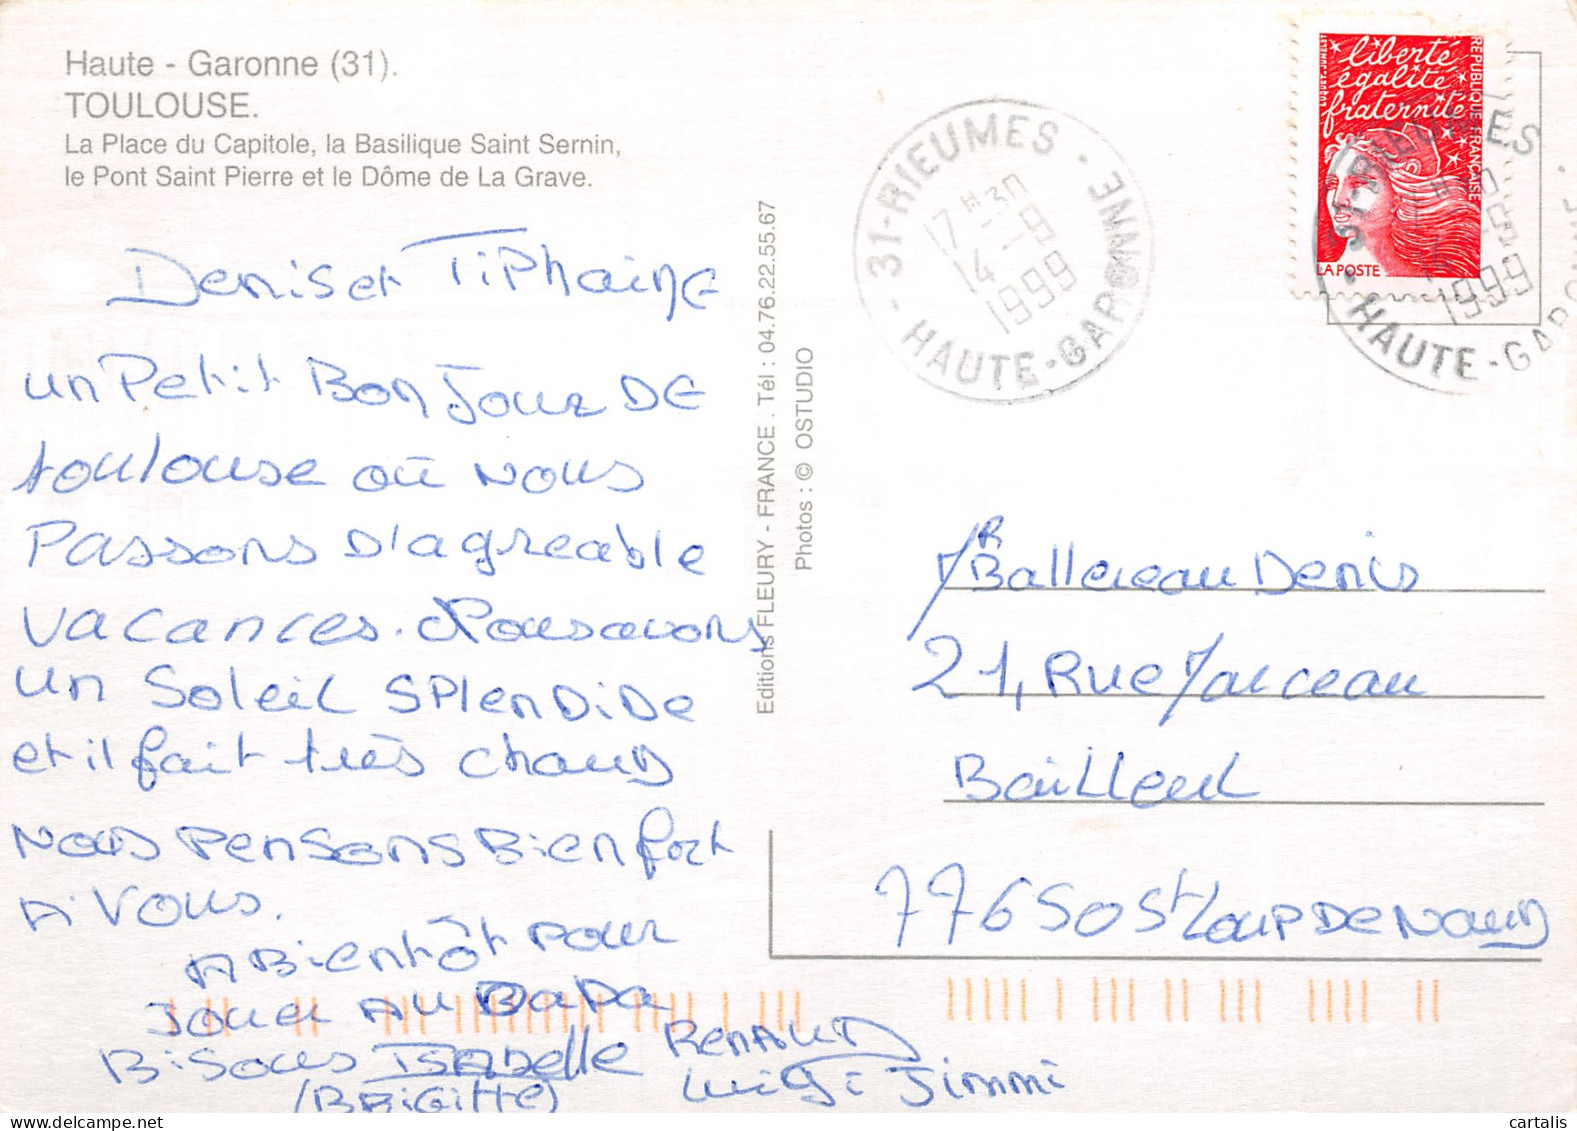 Haute - Garonne (31).
TOULOUSE.
La Place du Capitole, la Basilique Saint Sernin,
le Pont Saint Pierre et le Dôme de La Grave.
Denis et Tiphaine
un Petit Bonjour DE
toulouse où nous
Passons D'agreable
vacances. Nous avons
un Soleil SPlenDiDe
et il fait très chaud
nous Pensons Bien fort
A vous.
A Bientôt Pour
Jouer Au
Bisous Isabelle Renaud
(BRIGITTE) Luigi Jimmi
Editions FLEURY - FRANCE . Tél : 04.76.22.55.67
Photos : © OSTUDIO
31-RIEUMES - HAUTE-GARONNE -
17H30
14 -9
1999
liberté
égalité
fraternité
REPUBLIQUE FRANCAISE
LUQUET-JUMELET
LA POSTE
31-RIEUMES -
-9
1999
- HAUTE-GARONNE
Mr Ballereau Denis
21, Rue Marceau
Bailleul
77650 St Loup De Naud
www.cartalis.com
cartalis